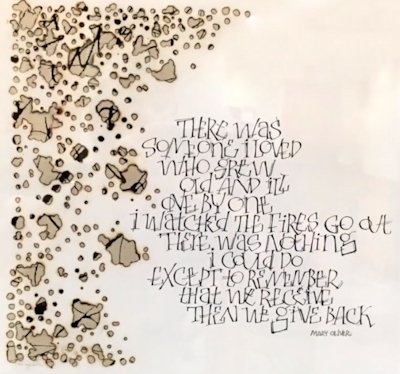 THERE WAS
SOMEONE I LOVED
WHO GREW
OLD AND ILL
ONE BY ONE
I WATCHED THE FIRES GO OUT
THERE WAS NOTHING
I COULD DO
EXCEPT TO REMEMBER
that WE RECEIVE
THEN WE GIVE BACK
MARY OLIVER